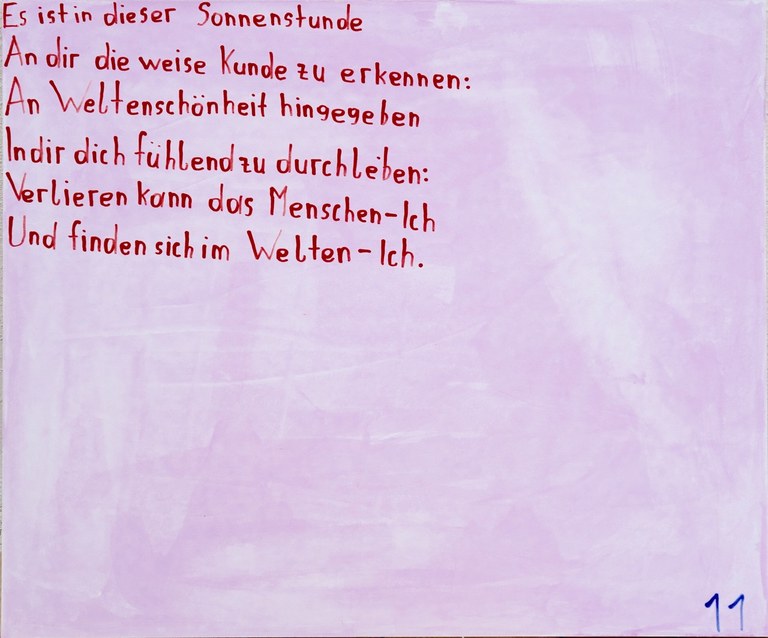 Es ist in dieser Sonnenstunde
An dir die weise Kunde zu erkennen:
An Weltenschönheit hingegeben
In dir dich fühlend zu durchleben:
Verlieren kann das Menschen-Ich
Und finden sich im Welten-Ich.
11